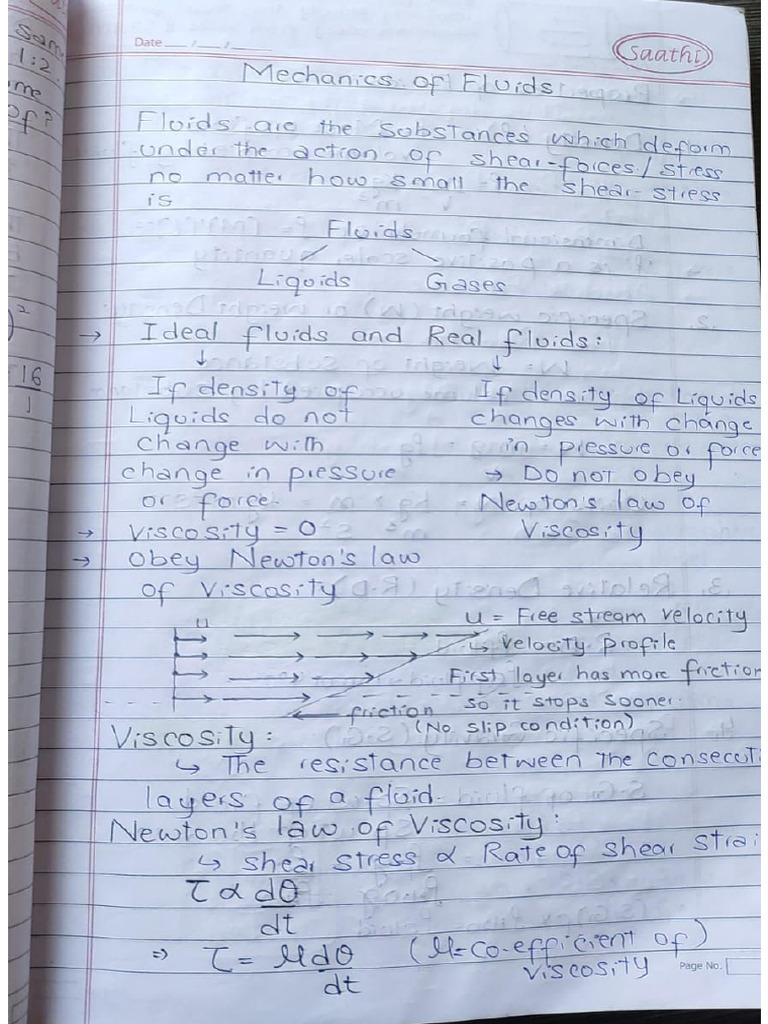 Sam
1:2
me
of?
2
16
1
Date __/__/____
Saathi
Mechanics of Fluids
Fluids are the substances which deform
under the action of shear-forces/stress
no matter how small the shear-stress
is
Fluids
Liquids Gases
→ Ideal fluids and Real fluids:
↓ ↓
If density of
Liquids do not
change with
change in pressure
or force.
→ Viscosity = 0
→ Obey Newton's law
of Viscosity
If density of Liquids
changes with change
in pressure or force
→ Do not obey
Newton's law of
Viscosity
u
u = Free stream velocity
↳ velocity profile
First layer has more friction
so it stops sooner.
friction
(No slip condition)
Viscosity:
↳ The resistance between the consecuti
layers of a fluid.
Newton's law of Viscosity:
↳ shear stress ∝ Rate of shear strai
τ ∝ dθ
dt
⇒ τ = μ dθ (μ=co-efficient of)
dt viscosity
Page No.